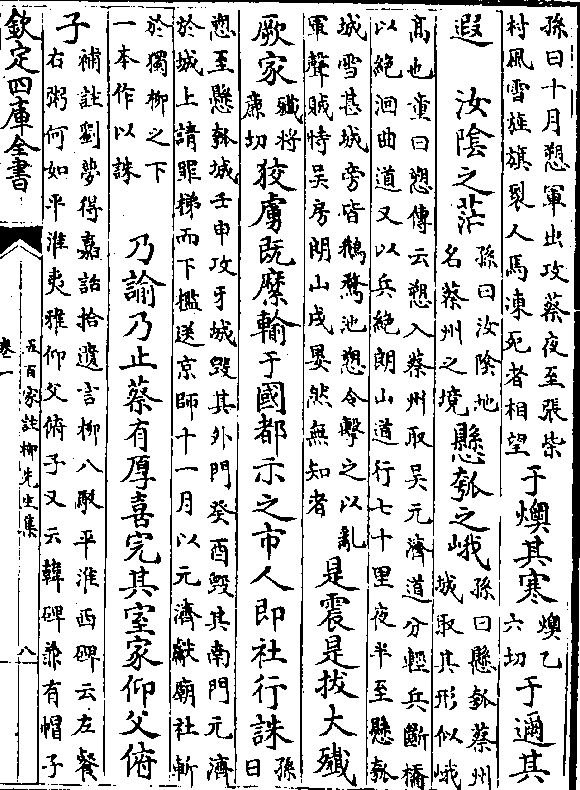 孫曰十月愬軍出攻蔡夜至張柴
村風雪旌旗裂人馬凍死者相望
于燠其寒
燠乙
六切
于邇其
遐 汝陰之茫
孫曰汝陰地
名蔡州之境
懸瓠之峨
孫曰懸瓠蔡州
城取其形似峨
高也童曰愬傳云愬入蔡州取吳元濟道分輕兵斷橋
以絶洄曲道又以兵絶朗山道行七十里夜半至懸瓠
城雪甚城旁皆鵝鶩池愬令擊之以亂
軍聲賊恃吳房朗山戍晏然無知者
是震是拔大殲
厥家
殲將
亷切
狡虜既縻輸于國都示之市人即社行誅
孫
曰
愬至懸瓠城壬申攻牙城毁其外門癸酉毁其南門元濟
於城上請罪梯而下檻送京師十一月以元濟獻廟社斬
於獨柳之下
一本作以誅
乃諭乃止蔡有厚喜完其室家仰父俯
子
補註劉夢得嘉話拾遺言柳八駁平淮西碑云左餐
右粥何如平淮夷雅仰父俯子又云韓碑兼有帽子
欽定四庫全書
五百家註柳先生集
卷一
八